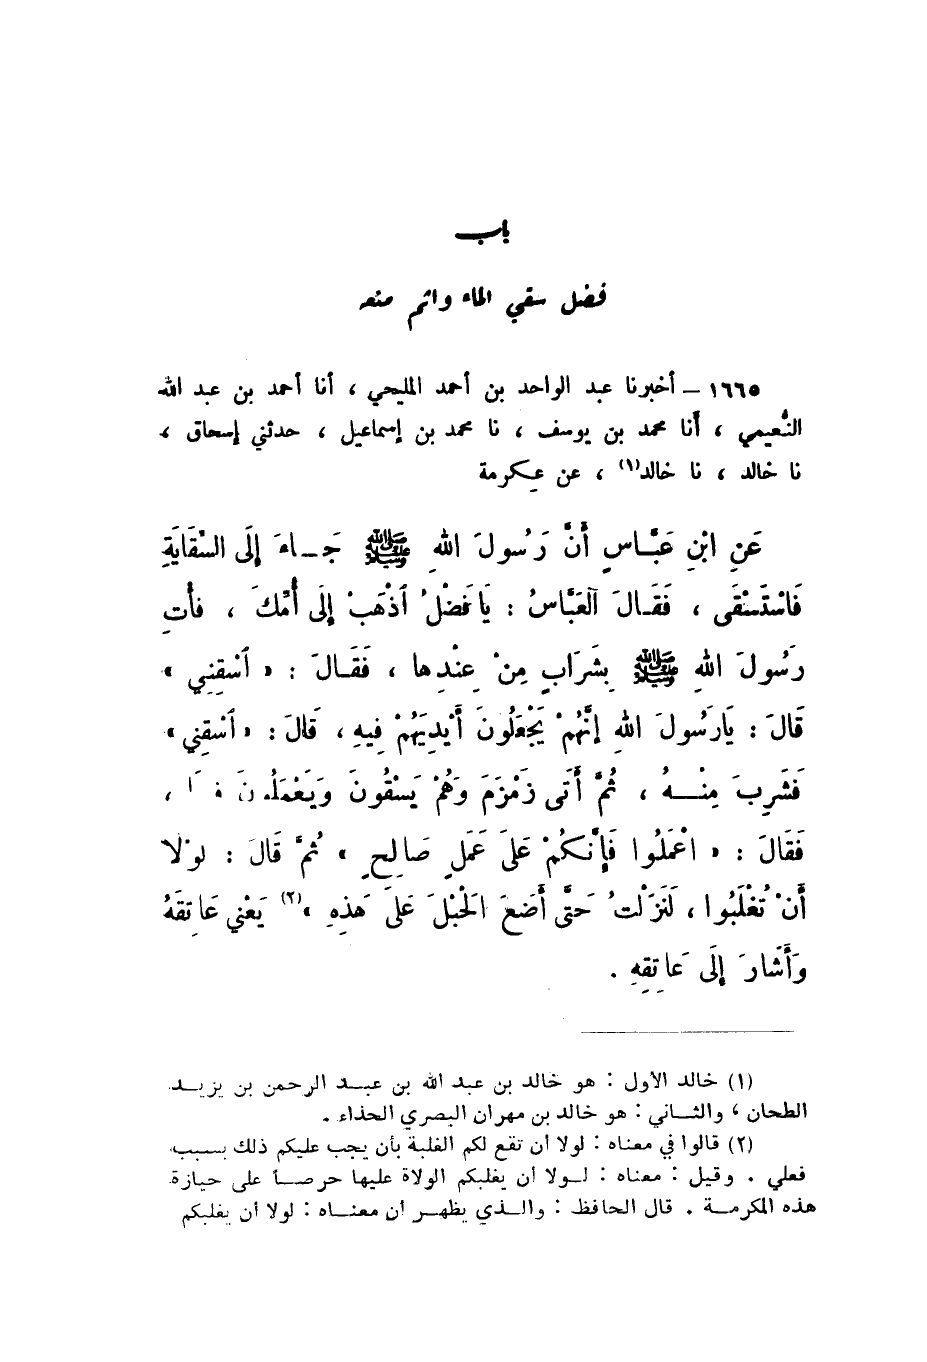 باب
فضل سقي الماء واثم منعه
١٦٦٥ – أخبرنا عبد الواحد بن أحمد المليحي ، أنا أحمد بن عبد الله
النُّعيمي ، أَنا محمد بن يوسف ، نا محمد بن إسماعيل ، حدثني إسحاق ،
نا خالد ، نا خالد(١) ، عن عِكرمة
عَنِ ابْنِ عَبَّاسٍ أَنَّ رَسُولَ اللهِ ﷺ جَاءَ إِلَى السِّقَايَةِ
فَاسْتَسْقَى ، فَقَالَ الْعَبَّاسُ : يَا فَضْلُ اذْهَبْ إِلَى أُمِّكَ ، فأْتِ
رَسُولَ اللهِ ﷺ بِشَرَابٍ مِنْ عِنْدِها ، فَقَالَ : « اسْقِنِي »
قَالَ : يَارَسُولَ اللهِ إِنَّهُمْ يَجْعَلُونَ أَيْدِيَهُمْ فِيهِ ، قَالَ : « اسْقِنِي »
فَشَرِبَ مِنْهُ ، ثُمَّ أَتَى زَمْزَمَ وَهُمْ يَسْقُونَ وَيَعْمَلُونَ ،
فَقَالَ : « اعْمَلُوا فَإِنَّكُمْ عَلَى عَمَلٍ صَالِحٍ » ثُمَّ قَالَ : لَوْلَا
أَنْ تُغْلَبُوا ، لَنَزَلْتُ حَتَّى أَضَعَ الْحَبْلَ عَلَى هَذِهِ »(٢) يَعْنِي عَاتِقَهُ
وَأَشَارَ إِلَى عَاتِقِهِ .
(١) خالد الأول : هو خالد بن عبد الله بن عبد الرحمن بن يزيد
الطحان ، والثاني : هو خالد بن مهران البصري الحذاء .
(٢) قالوا في معناه : لولا أن تقع لكم الغلبة بأن يجب عليكم ذلك بسبب
فعلي . وقيل : معناه : لولا أن يغلبكم الولاة عليها حرصاً على حيازة
هذه المكرمة . قال الحافظ : والذي يظهر أن معناه : لولا أن يغلبكم